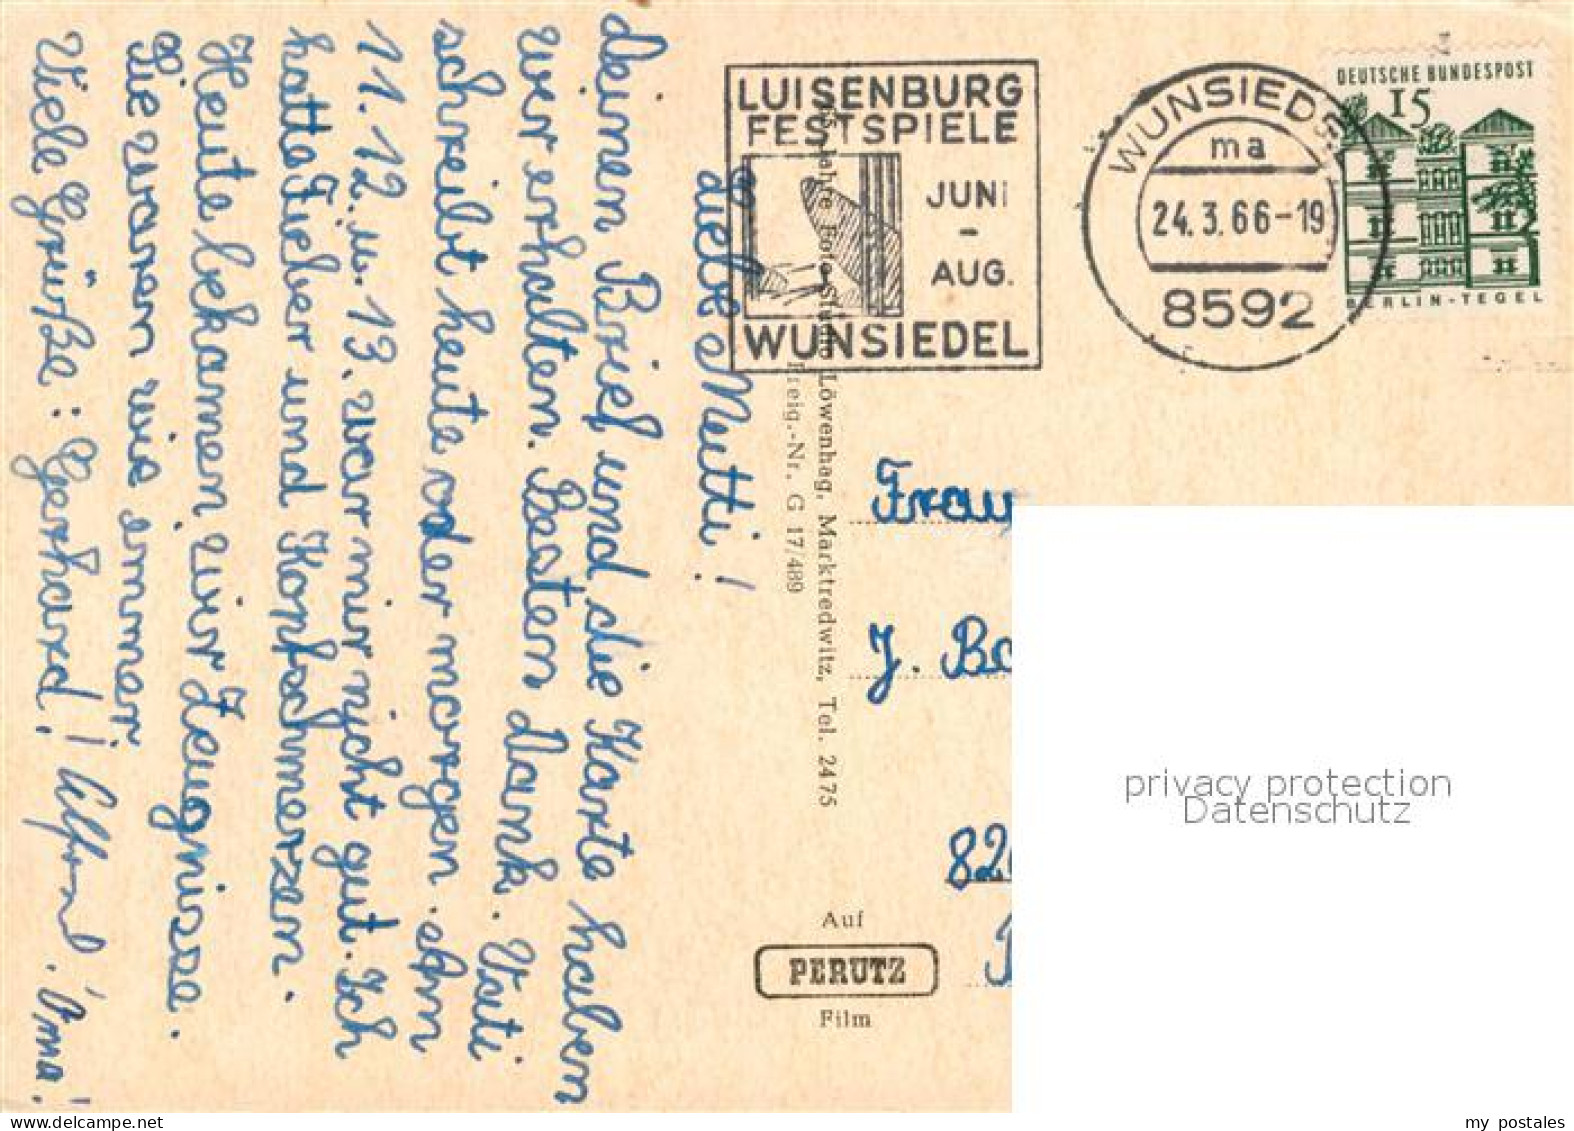 Liebe Mutti!
Deinen Brief und die Karte haben
wir erhalten. Besten Dank. Vati
schreibt heute oder morgen. Am
11. 12. u. 13. war mir nicht gut. Ich
hatte Fieber und Kopfschmerzen.
Heute bekamen wir Zeugnisse.
Sie waren wie immer.
Viele Grüße: Gerhard! Alfons! Oma!
LUISENBURG
FESTSPIELE
JUNI
-
AUG.
WUNSIEDEL
WUNSIEDEL
ma
24.3.66-19
8592
DEUTSCHE BUNDESPOST
15
BERLIN-TEGEL
Jahre Foto-Studio Löwenhag, Marktredwitz, Tel. 2475
Freig.-Nr. G 17/489
Frau
J. Bo
82
Auf
PERUTZ
Film
privacy protection
Datenschutz
my postales